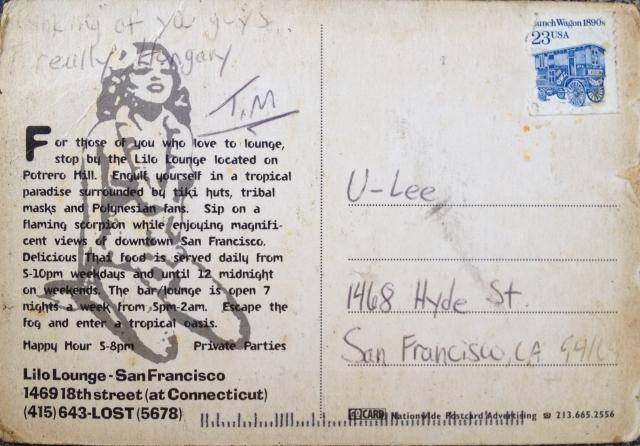 inking of you guys
really Hungary
TiM
For those of you who love to lounge,
stop by the Lilo Lounge located on
Potrero Hill. Engulf yourself in a tropical
paradise surrounded by tiki huts, tribal
masks and Polynesian fans. Sip on a
flaming scorpion while enjoying magnifi-
cent views of downtown San Francisco.
Delicious Thai food is served daily from
5-10pm weekdays and until 12 midnight
on weekends. The bar/lounge is open 7
nights a week from 5pm-2am. Escape the
fog and enter a tropical oasis.
Happy Hour 5-8pm Private Parties
Lilo Lounge - San Francisco
1469 18th street (at Connecticut)
(415) 643-LOST (5678)
unch Wagon 1890s
23 USA
U-Lee
1468 Hyde St.
San Francisco, CA
CARD Nationwide Postcard Advertising ☎ 213.665.2556